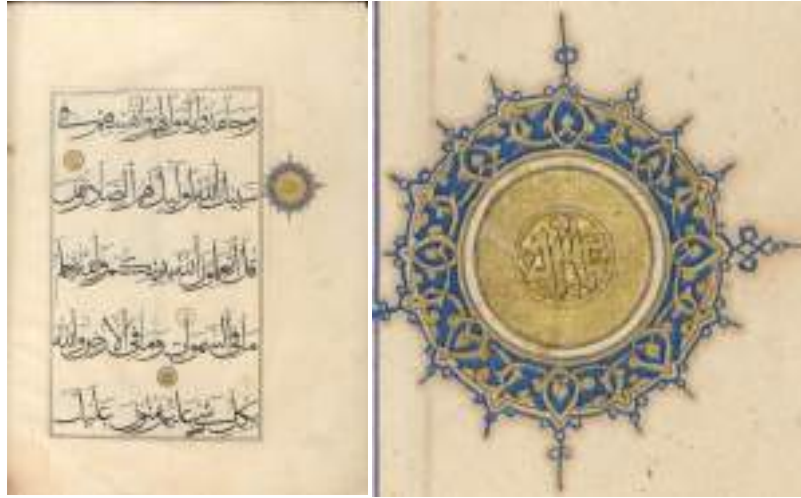 وجاهدوا باموالهم وانفسهم في
سبيل الله اوليك هم الصادقون
قل اتعلمون الله بدينكم والله يعلم
ما في السموات وما في الارض والله
بكل شي عليم يمنون عليك